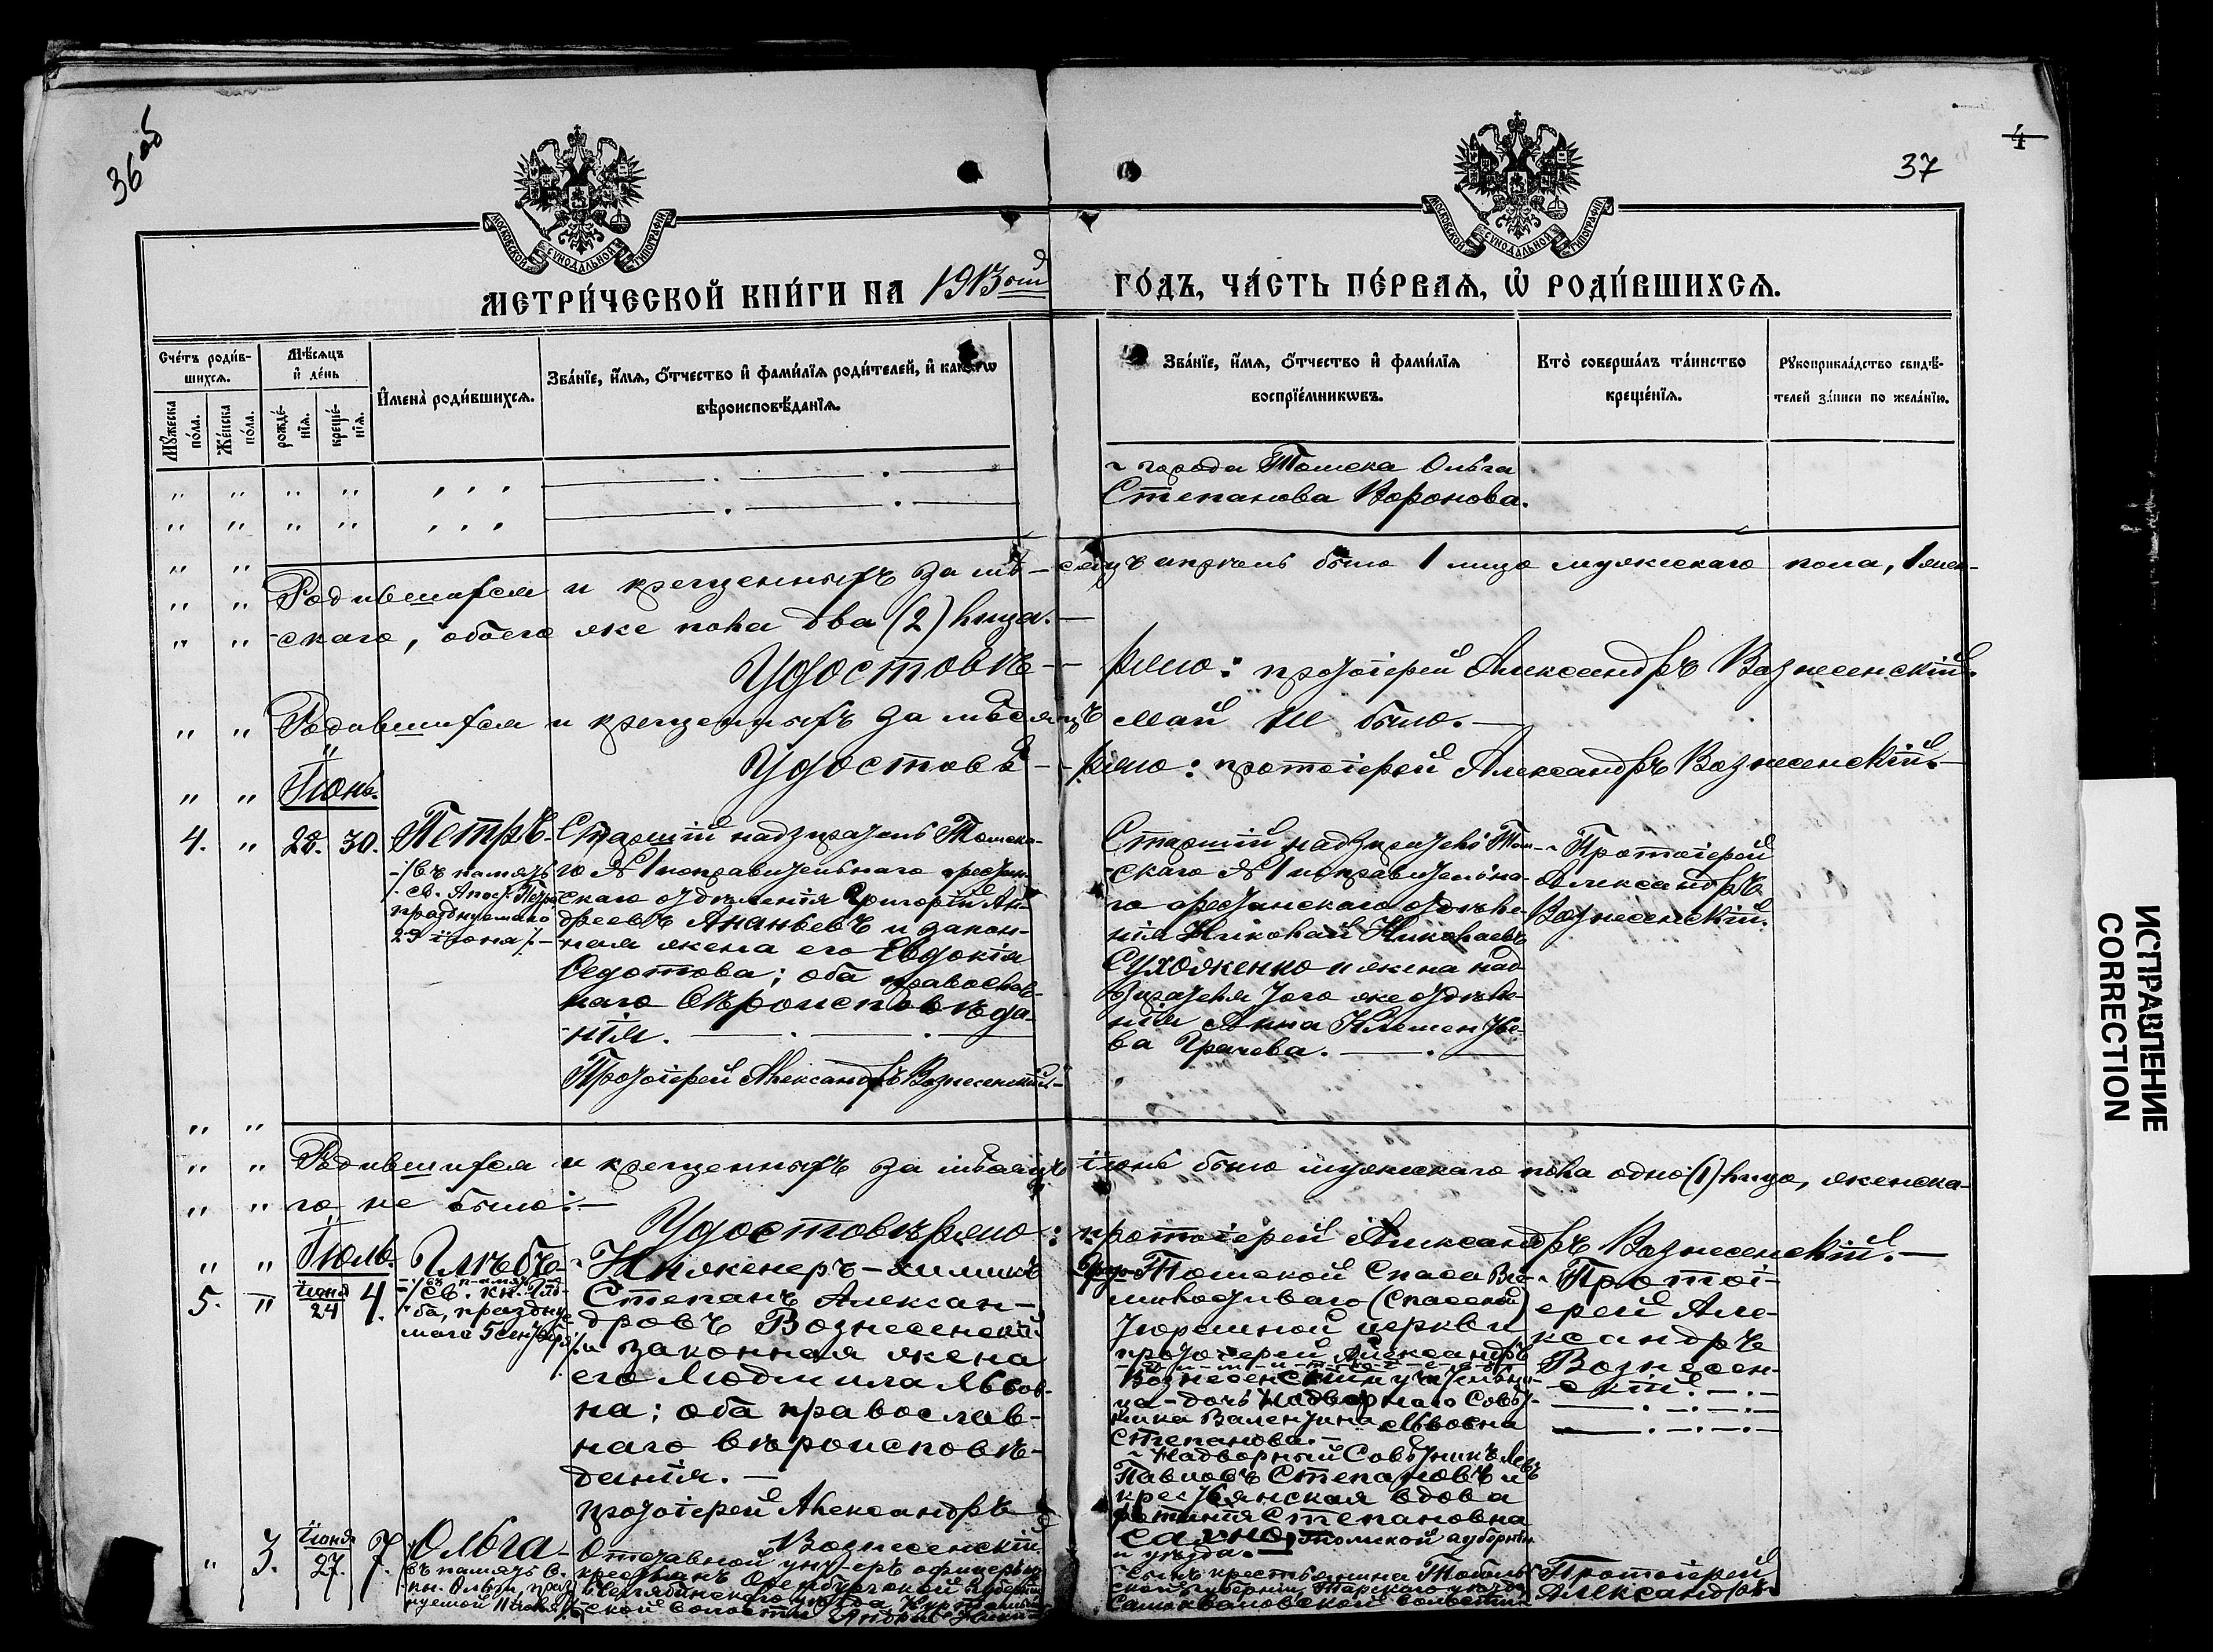 36 об
37
4
МОСКОВСКОЙ СѴНОДАЛЬНОЙ ТИПОГРАФІИ
МОСКОВСКОЙ СѴНОДАЛЬНОЙ ТИПОГРАФІИ
МЕТРИ́ЧЕСКОЙ КНИ́ГИ НА 1913ый
ГО́ДЪ, ЧА́СТЬ ПЕ́РВАѦ, Ѽ РОДИ́ВШИХСѦ.
Сче́тъ роди́в-
шихсѧ.
Мꙋ́жеска по́ла.
Же́нска по́ла.
Мѣ́сѧцъ и҆ де́нь
рожде́-
нїѧ.
креще́-
нїѧ.
И҆мена̀ роди́вшихсѧ.
Зва́нїе, и҆́мѧ, ѻ҆́тчество и҆ фами́лїѧ роди́телей, и҆ како́гѡ
вѣроисповѣ́данїѧ.
Зва́нїе, и҆́мѧ, ѻ҆́тчество и҆ фами́лїѧ
воспрїе́мникѡвъ.
Кто̀ соверша́лъ та́инство
креще́нїѧ.
Рꙋкоприкла́дство свидѣ́-
телей за́писи по жела́нїю.
города Томска Ольга
Степанова Воронова.
Родившихся и крещенныхъ за мѣ-сяцъ апрѣль было 1 лицо мужескаго пола, 1 жен-
скаго, обоего же пола два (2) лица.
Удостовѣ-ряю: протоіерей Александръ Вознесенскій.
Родившихся и крещенныхъ за мѣсяцъ май не было.
Удостовѣ-ряю: протоіерей Александръ Вознесенскій.
Іюнь.
4. 28. 30.
Петръ
/въ память
св. Апос. Петра
празднуемаго
29 іюня/.
Старшій надзиратель Томска-
го №1 исправительнаго арестан-
скаго отдѣленія Григорій Ан-
дреевъ Ананьевъ и закон-
ная жена его Евдокія
Ѳедотова; оба православ-
наго вѣроисповѣда-
нія.
Протоіерей Александръ Вознесенскій.
Старшій надзиратель Том-
скаго №1 исправительна-
го арестанскаго отдѣле-
нія Николай Николаевъ
Сухоженко и жена над-
зирателя того же отдѣле-
нія Анна Клементье-
ва Грачева.
Протоіерей
Александръ
Вознесенскій.
Родившихся и крещенныхъ за мѣсяцъ іюнь было мужескаго пола одно (1) лицо, женска-
го не было.
Удостовѣряю: протоіерей Александръ Вознесенскій.
Іюль.
5. іюня 24 4.
Глѣбъ
/въ память
св. кн. Глѣ-
ба, праздну
маго 5 сентября/
Инженеръ-химикъ
Степанъ Алексан-
дровъ Вознесенскій
и законная жена
его Людмила Львов-
на; оба православ-
наго вѣроисповѣ-
данія.
протоіерей Александръ
Вознесенскій.
Томской Спаса Все-
милостиваго (Спасской)
тюремной церкви
протоіерей Александръ
Вознесенскій и
дочь Надворнаго Совѣт-
ника Валентина Львовна
Степанова.
Надворный Совѣтникъ Левъ
Павловъ Степановъ и
крестьянская вдова
Степановна
Томской губерніи
и уѣзда.
Протоі-
ерей Але-
ксандръ
Вознесен-
скій.
3. іюня 27. 7.
Ольга
въ память св.
кн. Ольги, праз
нуемой 11 іюля
Отставной унтеръ офицеръ
крестьянъ Оренбургской губерніи
Челябинскаго уѣзда
ской волости Андрей
сынъ крестьянина Тоболь-
ской губерніи, Тарскаго уѣзда
волости
Протоіерей
Александръ
ИСПРАВЛЕНИЕ
CORRECTION